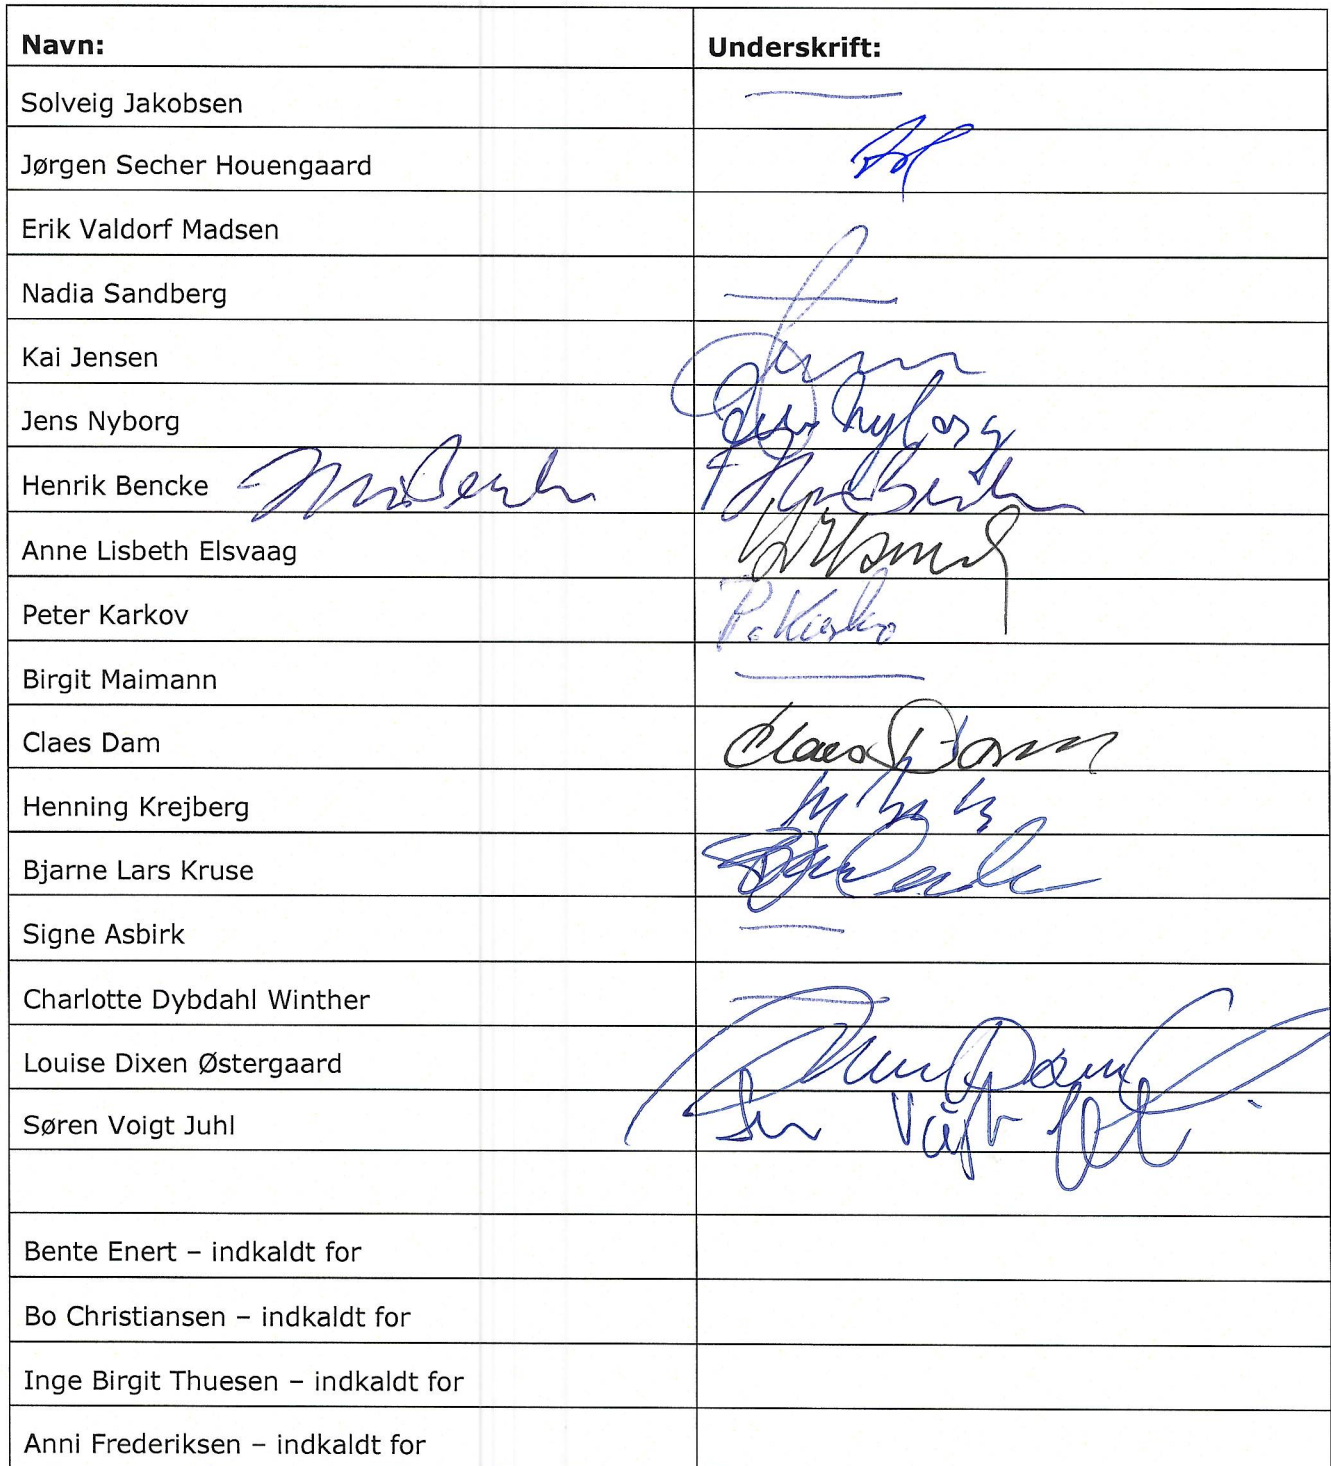 Navn: Underskrift:
Solveig Jakobsen
Jørgen Secher Houengaard
Erik Valdorf Madsen
Nadia Sandberg
Kai Jensen
Jens Nyborg Jens Nyborg
Henrik Bencke
Anne Lisbeth Elsvaag
Peter Karkov P. Karkov
Birgit Maimann
Claes Dam Claes Dam
Henning Krejberg
Bjarne Lars Kruse
Signe Asbirk
Charlotte Dybdahl Winther
Louise Dixen Østergaard
Søren Voigt Juhl Voigt
Bente Enert – indkaldt for
Bo Christiansen – indkaldt for
Inge Birgit Thuesen – indkaldt for
Anni Frederiksen – indkaldt for